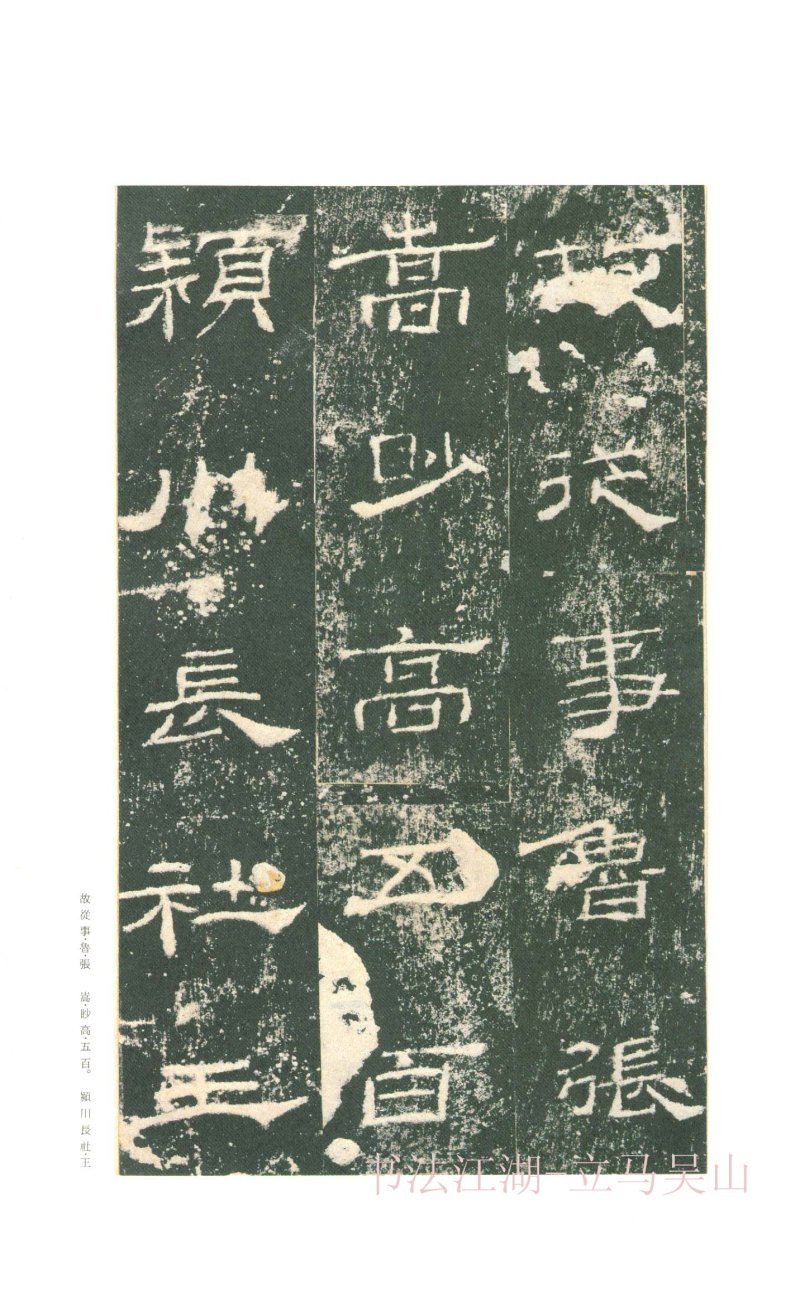 故從事魯張
嵩眇高五百
潁川長社王
故從事·魯·張　嵩·眇高·五百。　潁川長社·王
书法江湖-立马吴山